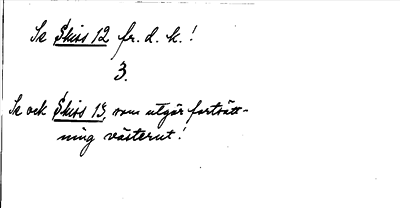 Se Skiss 12 fr. d. k.!
3.
Se och Skiss 13, som utgör fortsätt-
ning västerut!